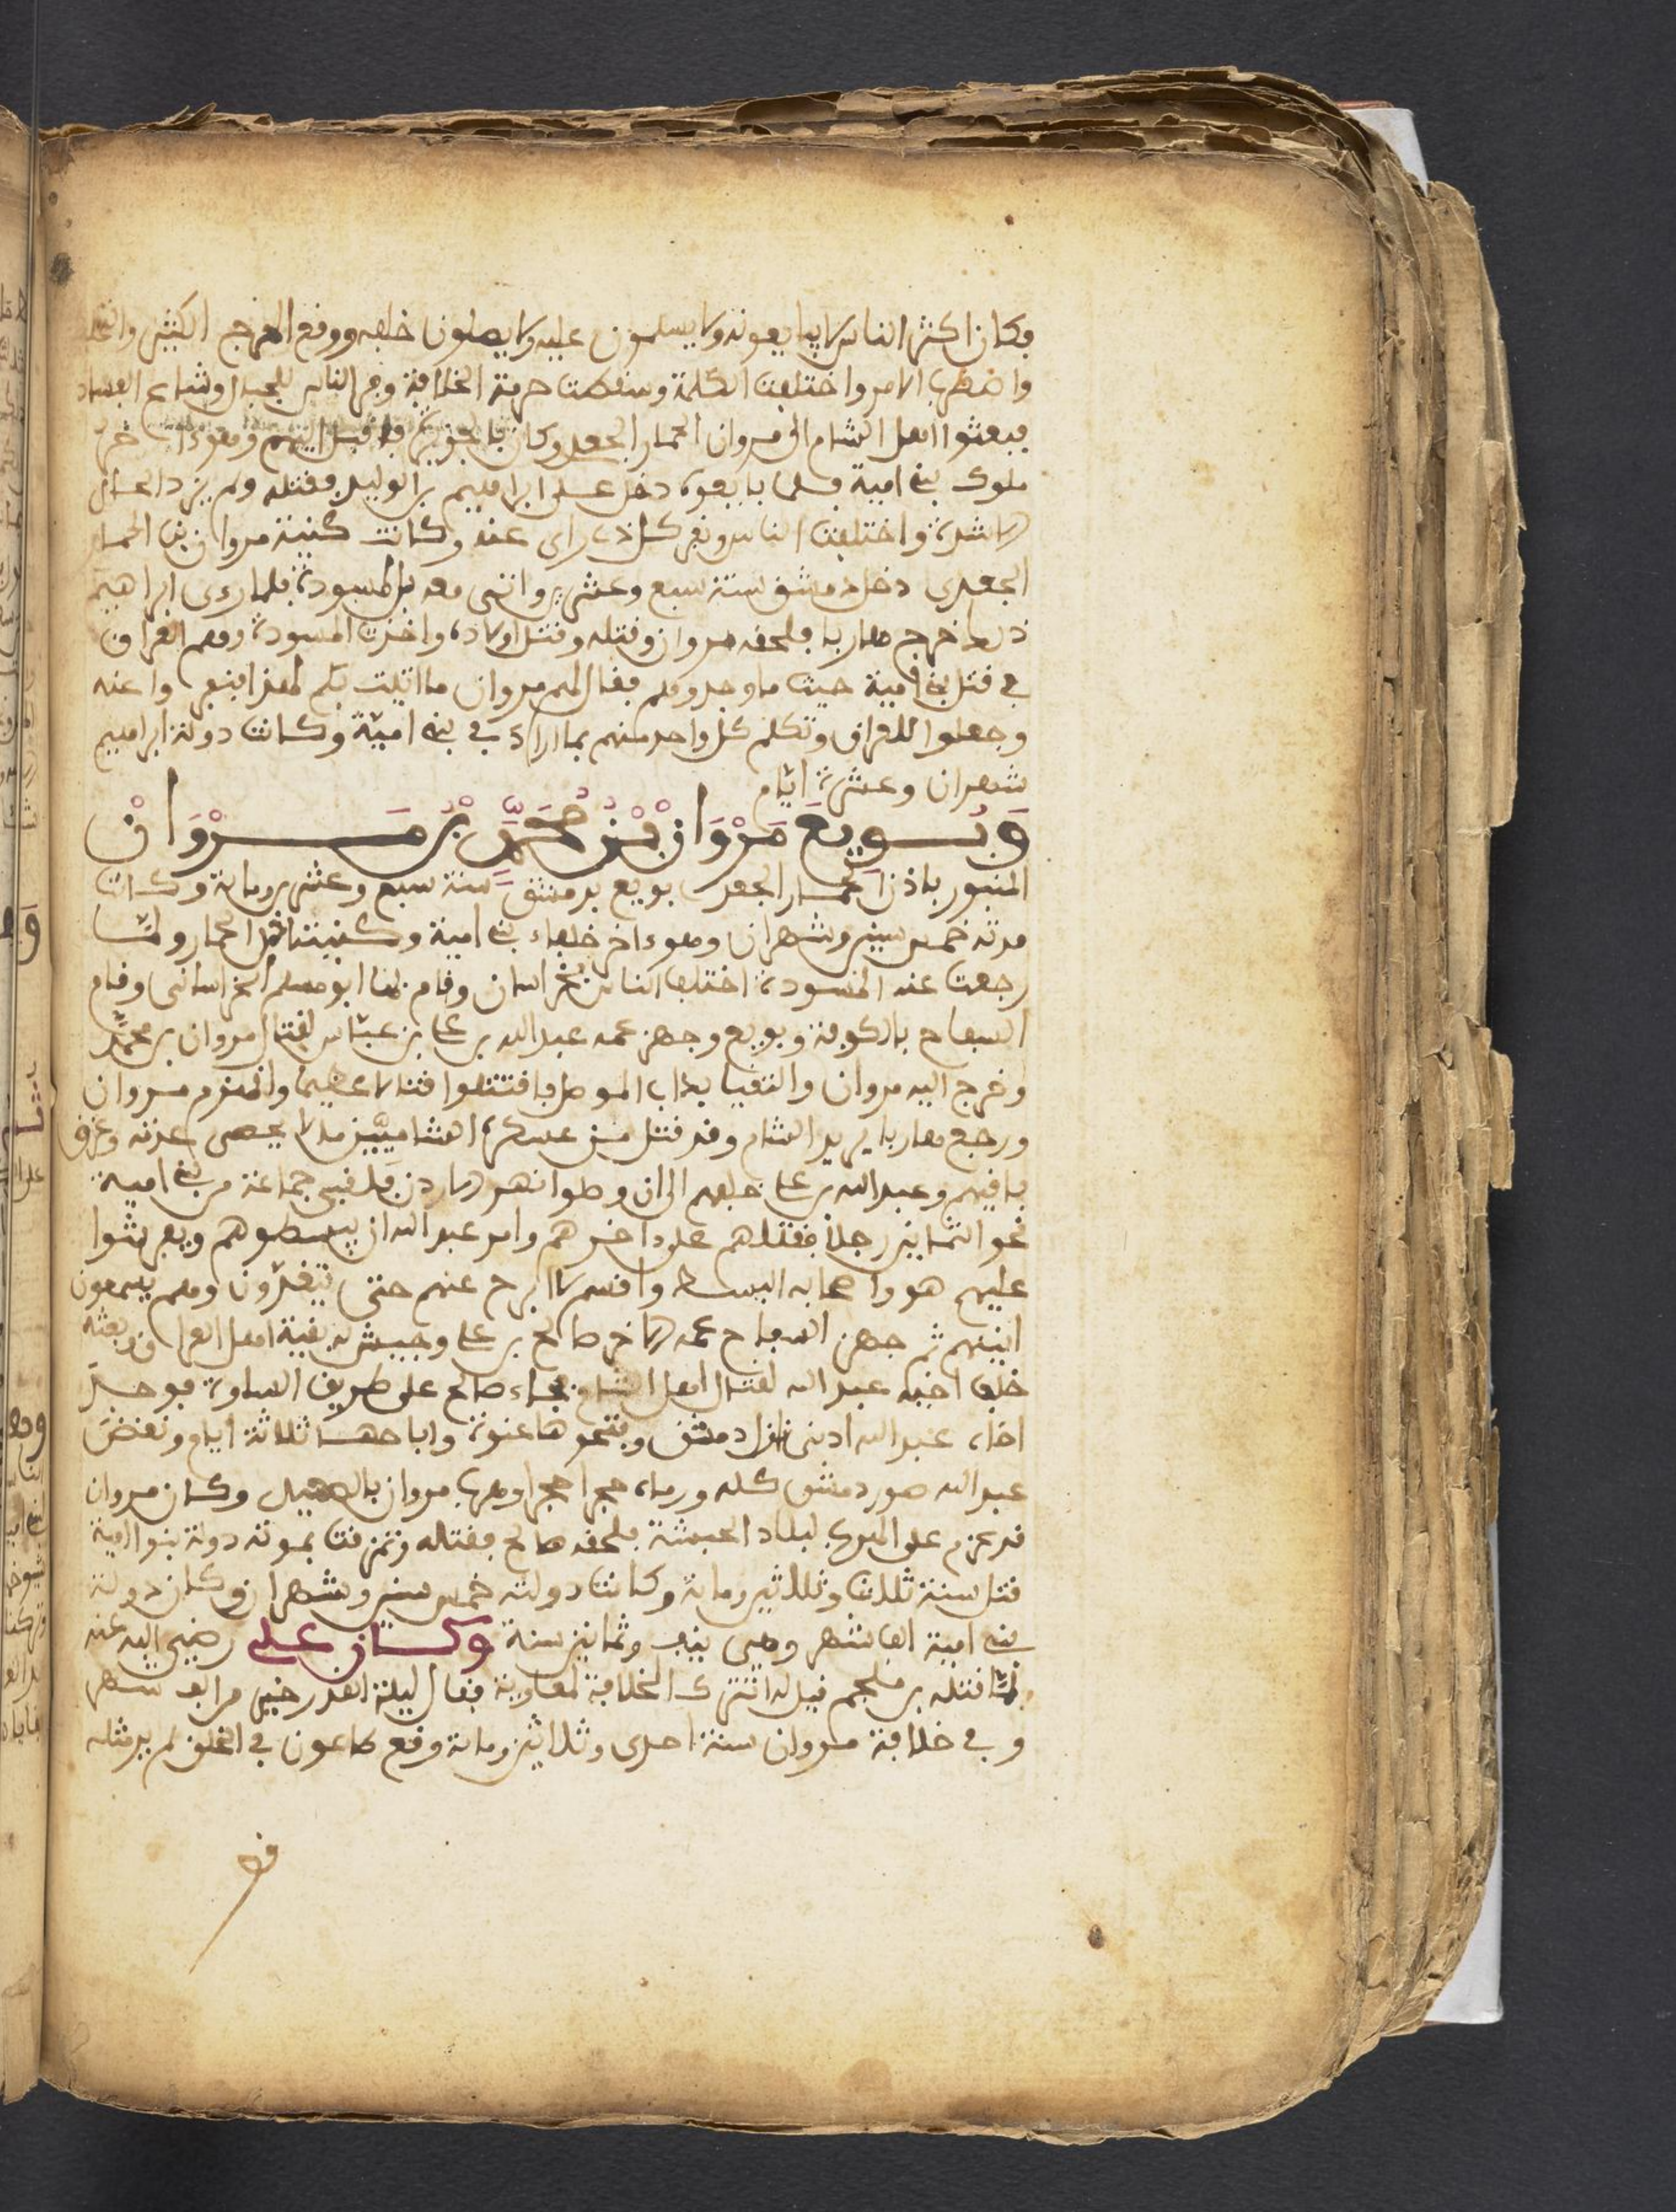 فكان اكثر الناس لا يبايعونه ولا يسلمون عليه ولا يصلون خلفه ووقع الهرج الكثير
واضطرب الامر واختلفت الكلمة وسقطت حرمة الخلافة وفر الناس للجبال وشاع الفساد
فبعثوا اهل الشام الى مروان الحمار الجعدي وكان بالجزيرة فاقبل اليهم وهو ءاخر
ملوك بني امية فلما بايعوه دخل على ابراهيم بن الوليد فقتله ولم يزد الحال
الا شدة واختلفت الناس ونفر كل ذي راي عنه وكانت كنية مروان بن الحمار
الجعدي دخل دمشق سنة سبع وعشرين واتى معه بالمسودة فلما رءى ابراهيم
ذلك خرج هاربا فلحقه مروان وقتله وقتل اولاده واخذت المسودة وهم العراق
في قتل بني امية حيث ما وجدوهم فقال لهم مروان ما اتيت بكم لهذا فنفروا عنه
ورجعوا للعراق وتكلم كل واحد منهم بما اراد في بني امية وكانت دولة ابراهيم
شهران وعشرة ايام
وَبُويِعَ مَرْوَان بْنُ مُحَمَّد بْن مَرْوَانْ
المنبور باذن الحمار الجعدي بويع بدمشق سنة سبع وعشرين وماية وكانت
مدته خمس سنين وشهران وهو ءاخر خلفاء بني امية وكنيته الحمار ولما
رجعت عنه المسودة اختلف الناس بخراسان وقام بها ابو مسلم الخراساني وقام
السفاح بالكوفة وبويع وجهز عمه عبد الله بن علي بن عباس لقتال مروان بن محمد
وخرج اليه مروان والتقيا بزاب الموصل فاقتتلوا قتالا عظيما وانهزم مروان
ورجع هاربا يريد الشام وقد قتل من عسكره الشاميين ما لا يحصى عدته وغرق
باقيهم وعبد الله بن علي خلفهم الى ان وصلوا نهر الاردن فلقي جماعة من بني امية
نحو الثمانين رجلا فقتلهم على ءاخرهم وامر عبد الله ان يبسطوهم ويفرشوا
عليهم هو واصحابه البسط واقسم لا ابرح عنهم حتى يتغذون وهم يسمعون
انينهم ثم جهز السفاح عمه الاخر صالح بن علي وجيش له بقية اهل العراق وبعثه
خلف اخيه عبد الله لقتال اهل الشام فجاء صالح على طريق السماوة فوجد
اخاه عبد الله ادنى نازل دمشق وفتحوها عنوة واباحها ثلاثة ايام ونقض
عبد الله صور دمشق كله ورماه حجرا حجرا وهرب مروان بالصعيد وكان مروان
قد عزم على الهروب لبلاد الحبشة فلحقه صالح فقتله وتمزقت بموته دولة بنو امية
قتل سنة ثلاث وثلاثين وماية وكانت دولته خمس سنين وشهران وكان دولة
بني امية الف شهر وهي نيف وثمانين سنة وكان علي رضي الله عنه
لما قتله بن ملجم قيل له اتترك الخلافة لمعاوية فقال ليلة القدر خير من الف شهر
وفي خلافة مروان سنة احدى وثلاثين وماية وقع طاعون في الخلق لم ير مثله